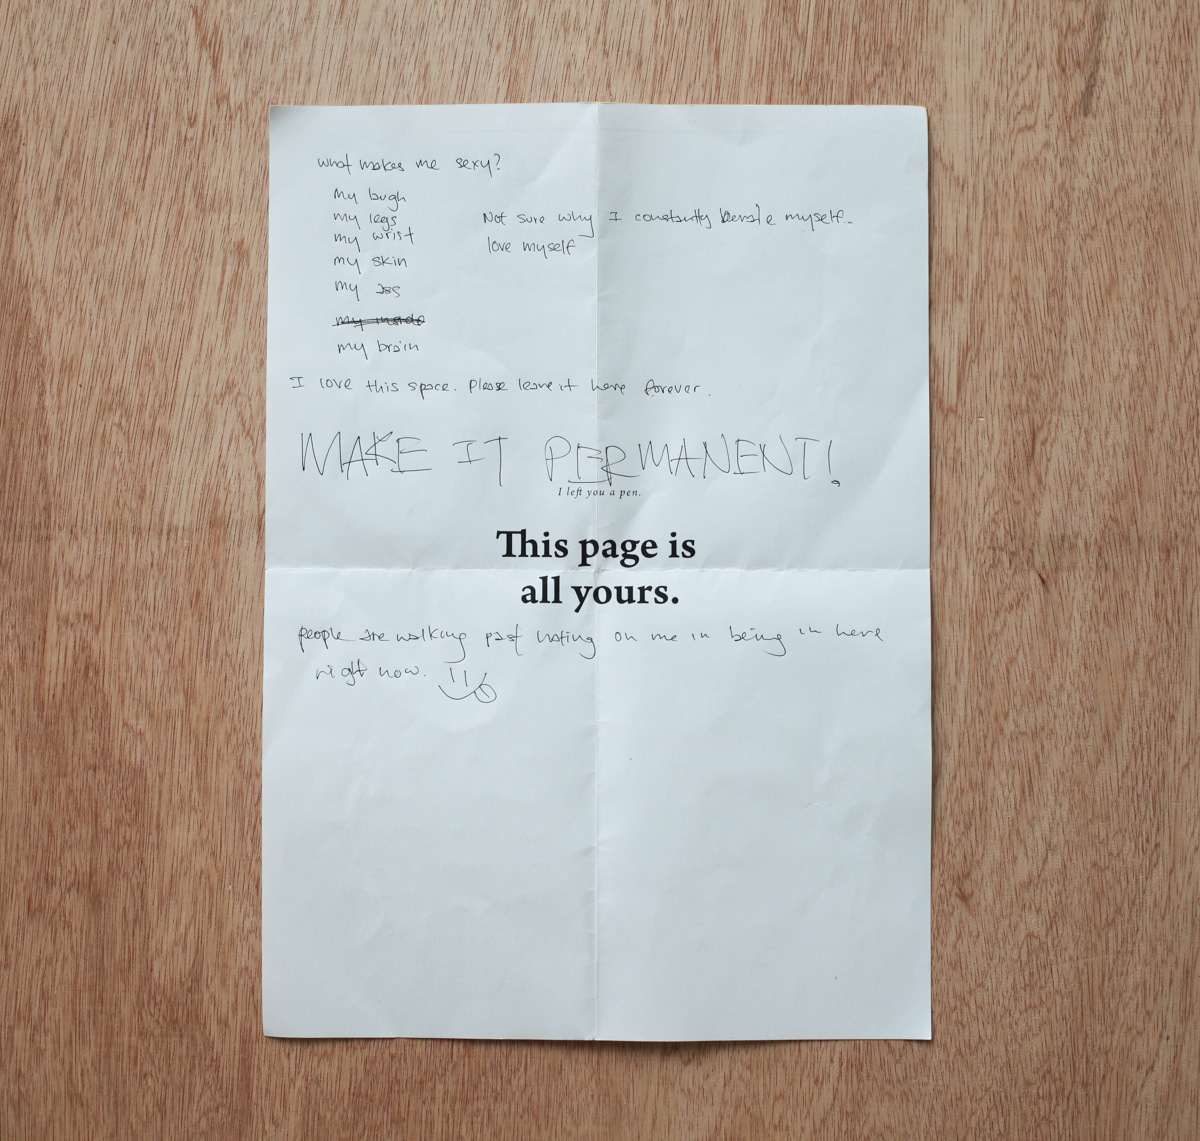 what makes me sexy?
my laugh
my legs
my wrist
my skin
my ass
my inside
my brain
Not sure why I constantly berate myself.
love myself
I love this space. Please leave it here forever.
MAKE IT PERMANENT!
I left you a pen.
This page is
all yours.
people are walking past hating on me in being in here
right now.